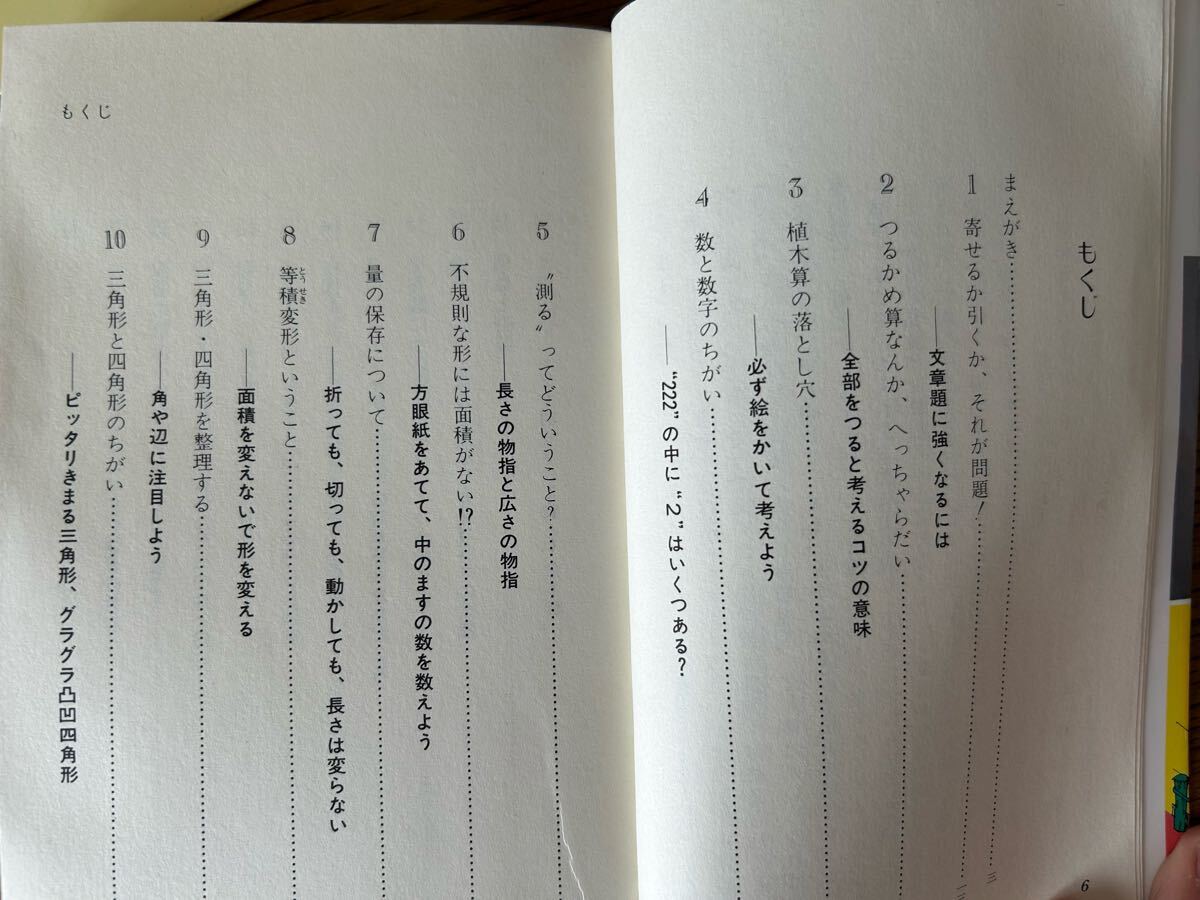 もくじ
まえがき……………………三
1 寄せるか引くか、それが問題!……………………
――文章題に強くなるには
2 つるかめ算なんか、へっちゃらだい……………………
――全部をつると考えるコツの意味
3 植木算の落とし穴……………………
――必ず絵をかいて考えよう
4 数と数字のちがい……………………
――“222”の中に“2”はいくつある?
6
もくじ
5 “測る”ってどういうこと?……………………
――長さの物指と広さの物指
6 不規則な形には面積がない!?……………………
――方眼紙をあてて、中のますの数を数えよう
7 量の保存について……………………
――折っても、切っても、動かしても、長さは変らない
8 等積変形ということ……………………
とうせき
――面積を変えないで形を変える
9 三角形・四角形を整理する……………………
――角や辺に注目しよう
10 三角形と四角形のちがい……………………
――ピッタリきまる三角形、グラグラ凸凹四角形